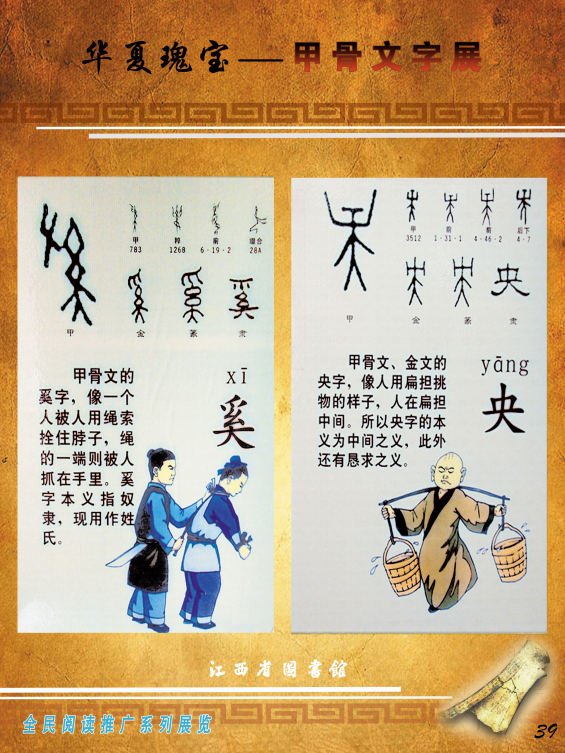 华夏瑰宝——甲骨文字展
甲 粹 前 缀合
783 1268 6·19·2 28A
甲 金 篆 隶
xī
奚
甲骨文的
奚字，像一个
人被人用绳索
拴住脖子，绳
的一端则被人
抓在手里。奚
字本义指奴
隶，现用作姓
氏。
甲 前 前 后下
3512 1·31·1 4·46·2 4·7
甲 金 篆 隶
yāng
央
甲骨文、金文的
央字，像人用扁担挑
物的样子，人在扁担
中间。所以央字的本
义为中间之义，此外
还有恳求之义。
江西省图書館
全民阅读推广系列展览
39